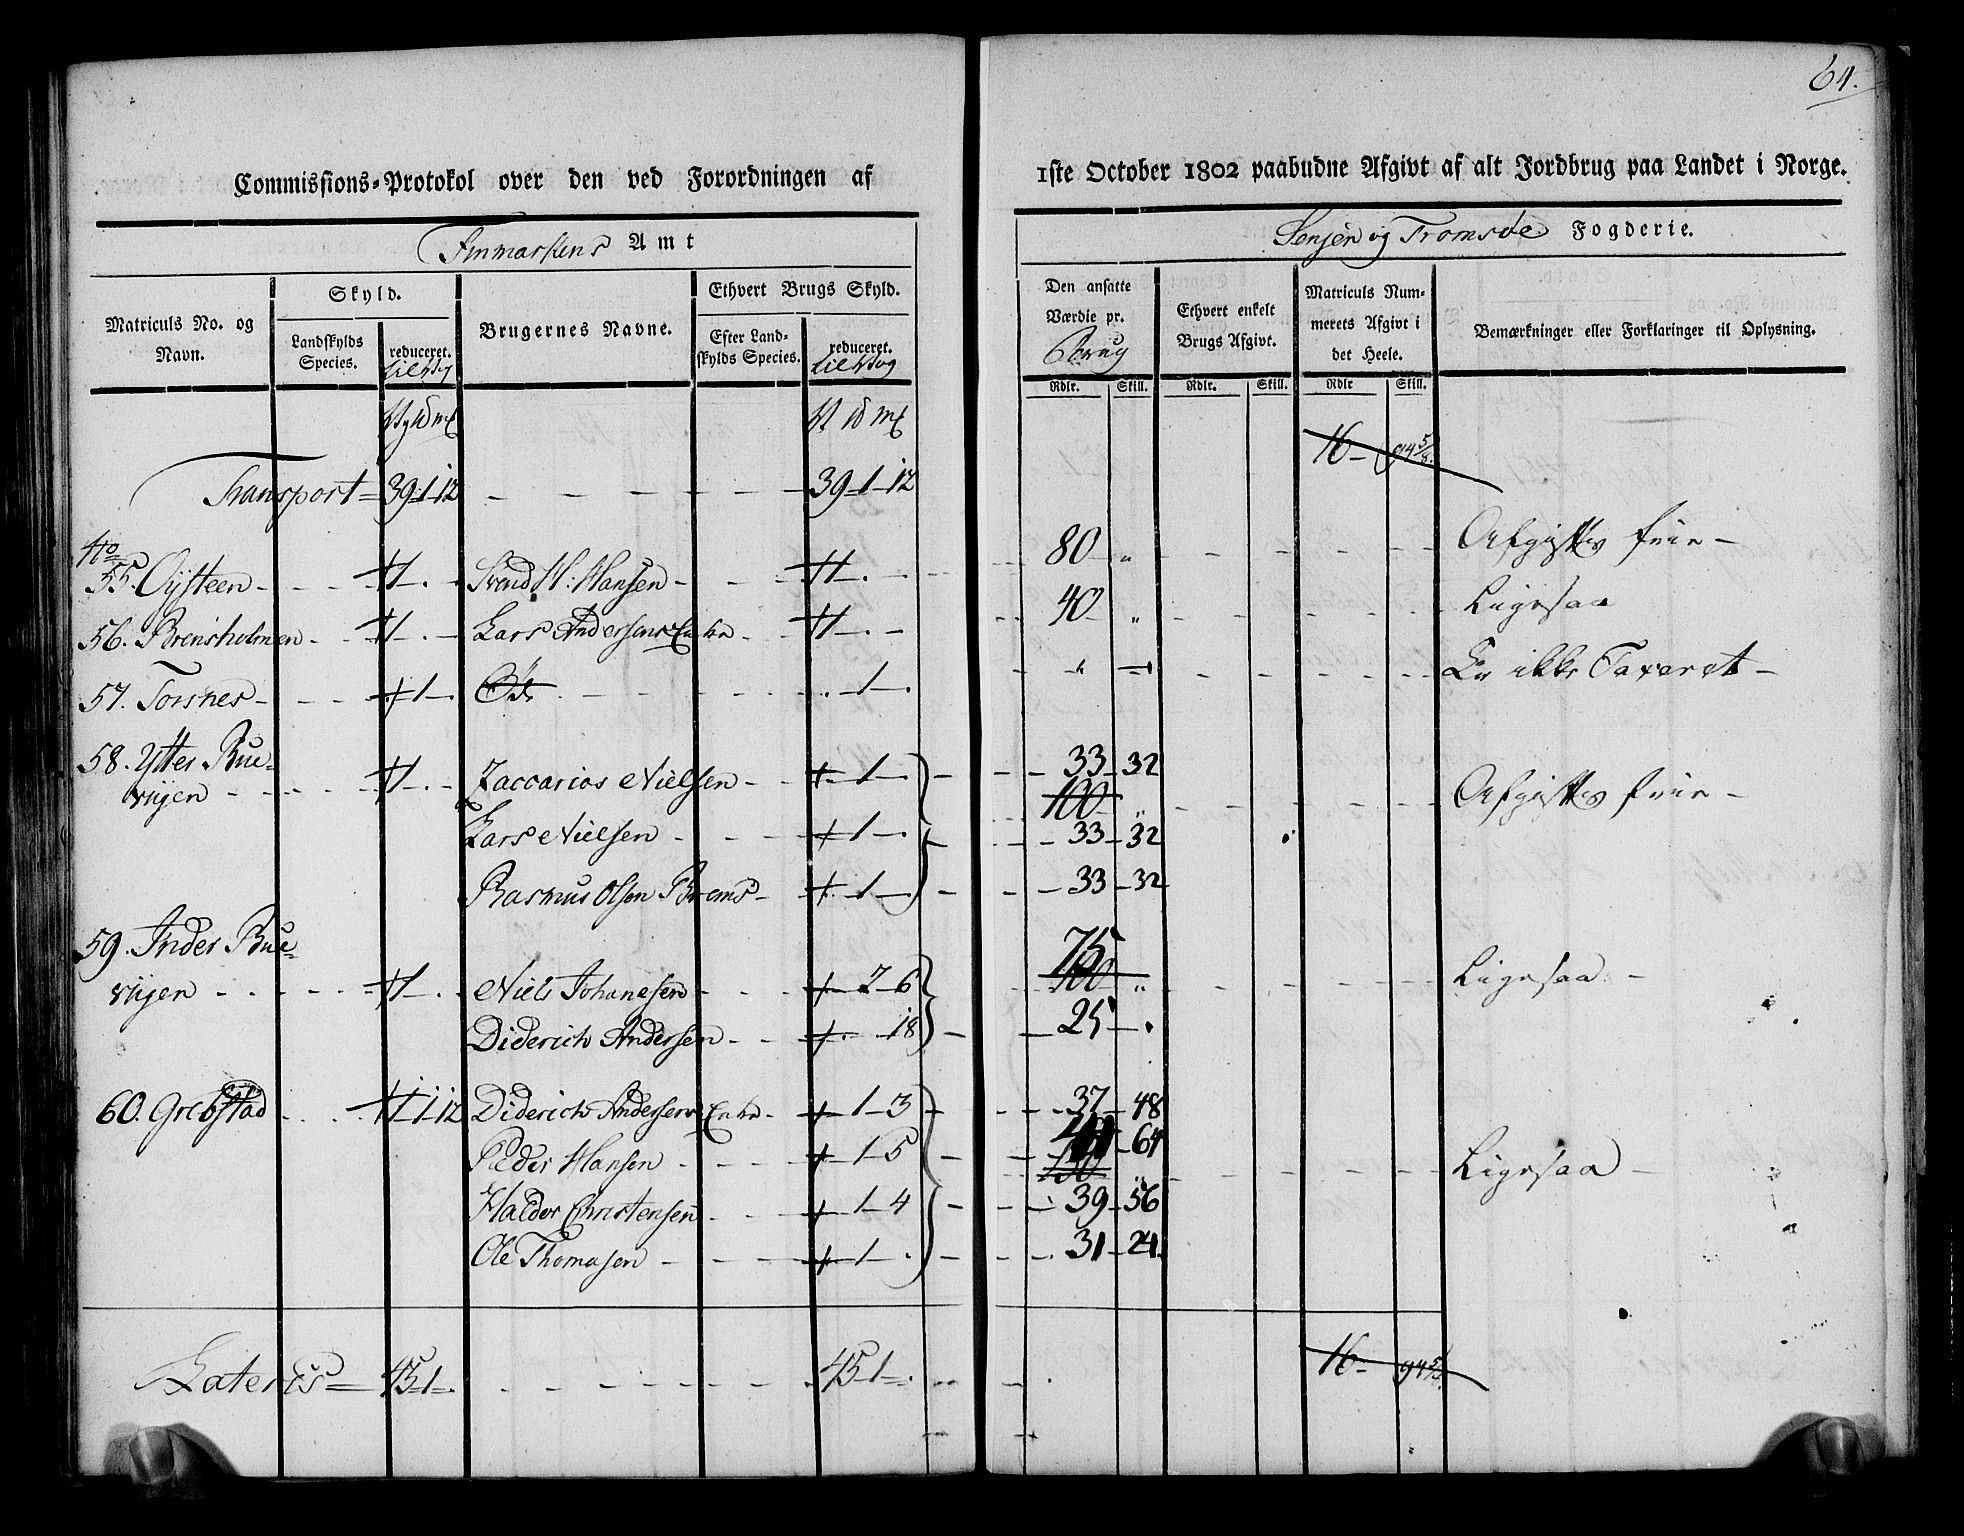 64.
Commissions-Protokol over den ved Forordningen af
1ste October 1802 paabudne Afgivt af alt Jordbrug paa Landet i Norge.
Finmarkens Amt
Senjen og Tromsøe Fogderie.
Matriculs No. og Navn.
Skyld.
Landskylds Species.
reduceret.
Brugernes Navne.
Ethvert Brugs Skyld.
Efter Landskylds Species.
reduceret.
Den ansatte Værdie pr. Brug
Rdlr. Skill.
Ethvert enkelt Brugs Afgivt.
Rdlr. Skill.
Matriculs Nummerets Afgivt i det Heele.
Rdlr Skill.
Bemærkninger eller Forklaringer til Oplysning.
16 - 94 5/8.
Transport = 39-1-12 - - - 39-1-12
No
55. Öysteen - - - 1 - . - Svend H: Hansen - - - 1 - . - 80 „ - - - Afgifts frie -
56. Brensholmen - - 1 - . - Lars Andersens Enke - - 1 - . - 40 „ - - - Ligesaa
57. Torsnes - - - 1 - . Öde . - - - . 1 - . - „ - - - Er ikke Taxeret -
58. Ytter Bue-
viigen - - - 1 - . - Zaccarias Nielsen - - 1 - . - 33 - 32
100 „ - - - Afgifts frie -
Lars Nielsen - - - 1 - . - 33 - 32
Rasmus Olsen Brems - 1 - - 33 - 32
59. Inder Bue-
viigen - - - 1 - . Niels Johanesen - - - 2 - 6 75
100 „ - - - Ligesaa -
Diderich Andersen - - . - 18 - 25 - .
60. Grebstad - - - 1-1-12 Diderich Andersens Enke - 1 - 3 - 37 - 48
Peder Hansen - - - 1 - 5 - - 64
Ligesaa -
Haldor Christensen - - 1 - 4 - 39 - 56
Ole Thomasen - - - 1 - . - 31 - 24
Lateris = 45-1- . - - - 45-1- . 16 - 94 5/8.